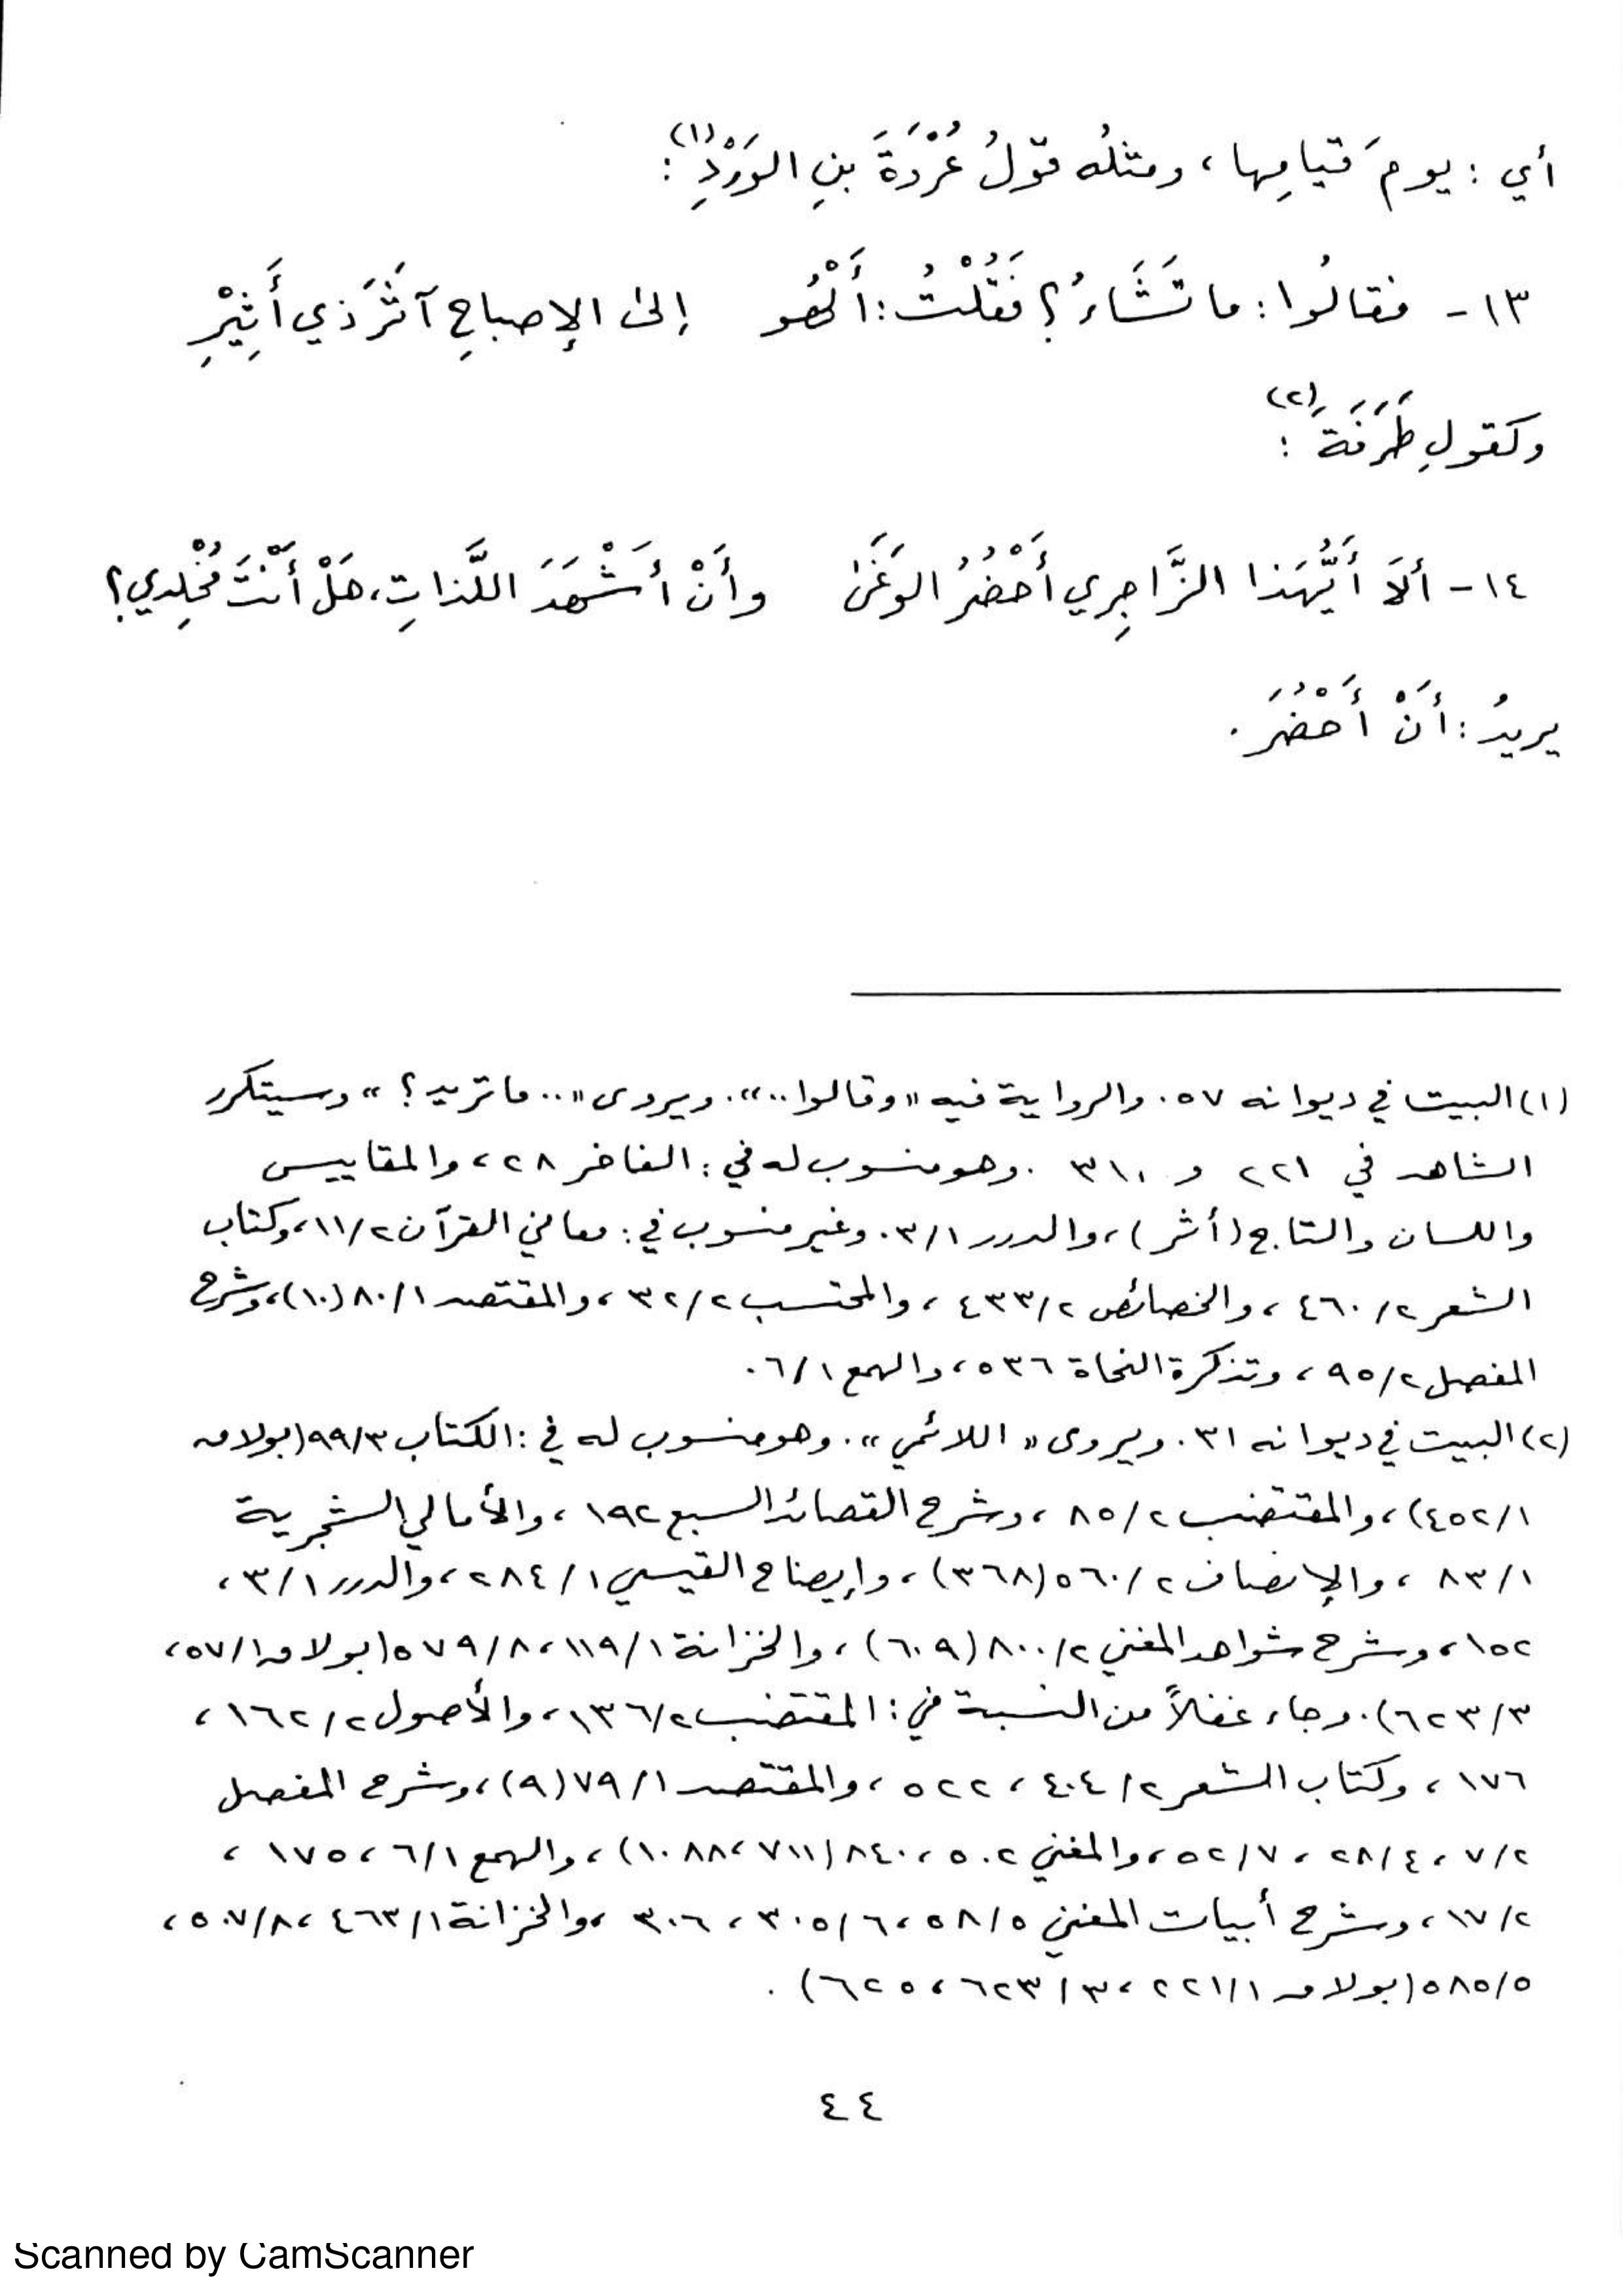 أي : يومَ قيامِها ، ومثلُه قوْلُ عُرْوَةَ بنِ الوَرْدِ(١) :
١٣- فقالُوا : ما تَشَاءُ ؟ فَقُلْتُ : أَلْهُو إلىٰ الإصباحِ آثَرَ ذي أَثِيْرِ
وكقولِ طَرَفَةَ(٢) :
١٤- ألَا أَيُّهَذا الزَّاجِرِي أَحْضُرُ الوَغَىٰ وأَنْ أَشْهَدَ اللَّذاتِ، هَلْ أَنْتَ مُخْلِدي؟
يريدُ : أَنْ أَحْضُرَ .
(١) البيت في ديوانه ٥٧. والرواية فيه «وقالوا..». ويروى «.. ما تريد ؟ » وسيتكرر
الشاهد في ٢٢١ و ٣١١ . وهو منسوب له في : الفاخر ٢٨ ، والمقاييس
واللسان والتاج (أثر) ، والدرر ٣/١ . وغير منسوب في : معاني القرآن ١١/٢ ، وكتاب
الشعر ٤٦٠/٢ ، والخصائص ٤٣٣/٢ ، والمحتسب ٣٢/٢ ، والمقتصد ٨٠/١ (١٠) ، وشرح
المفصل ٩٥/٢ ، وتذكرة النحاة ٥٣٦ ، والهمع ٦/١ .
(٢) البيت في ديوانه ٣١ . ويروى « اللائمي » . وهو منسوب له في : الكتاب ٩٩/٣ (بولاق
٤٥٢/١) ، والمقتضب ٨٥/٢ ، وشرح القصائد السبع ١٩٢ ، والأمالي الشجرية
٨٣/١ ، والإنصاف ٥٦٠/٢ (٣٦٨) ، وإيضاح القيسي ٢٨٤/١ ، والدرر ٣/١ ،
١٥٢ ، وشرح شواهد المغني ٨٠٠/٢ (٦٠٩) ، والخزانة ١١٩/١ ، ٥٧٩/٨ (بولاق ٥٧/١ ،
٦٢٣/٣) . وجاء غفلاً من النسبة في : المقتضب ١٣٦/٢ ، والأصول ١٦٢/٢ ،
١٧٦ ، وكتاب الشعر ٤٠٤/٢ ، ٥٢٢ ، والمقتصد ٧٩/١ (٩) ، وشرح المفصل
٧/٢ ، ٢٨/٤ ، ٥٢/٧ ، والمغني ٥٠٢ ، ٨٤٠ (٧١١ ، ١٠٨٨) ، والهمع ٦/١ ، ١٧٥ ،
١٧/٢ ، وشرح أبيات المغني ٥٨/٥ ، ٣٠٥/٦ ، ٣٠٦ ، والخزانة ٤٦٣/١ ، ٥٠٧/٨ ،
٥٨٥/٥ (بولاق ٢٢١/١ ، ٦٢٣/٣ ، ٦٢٥) .
٤٤
Scanned by CamScanner